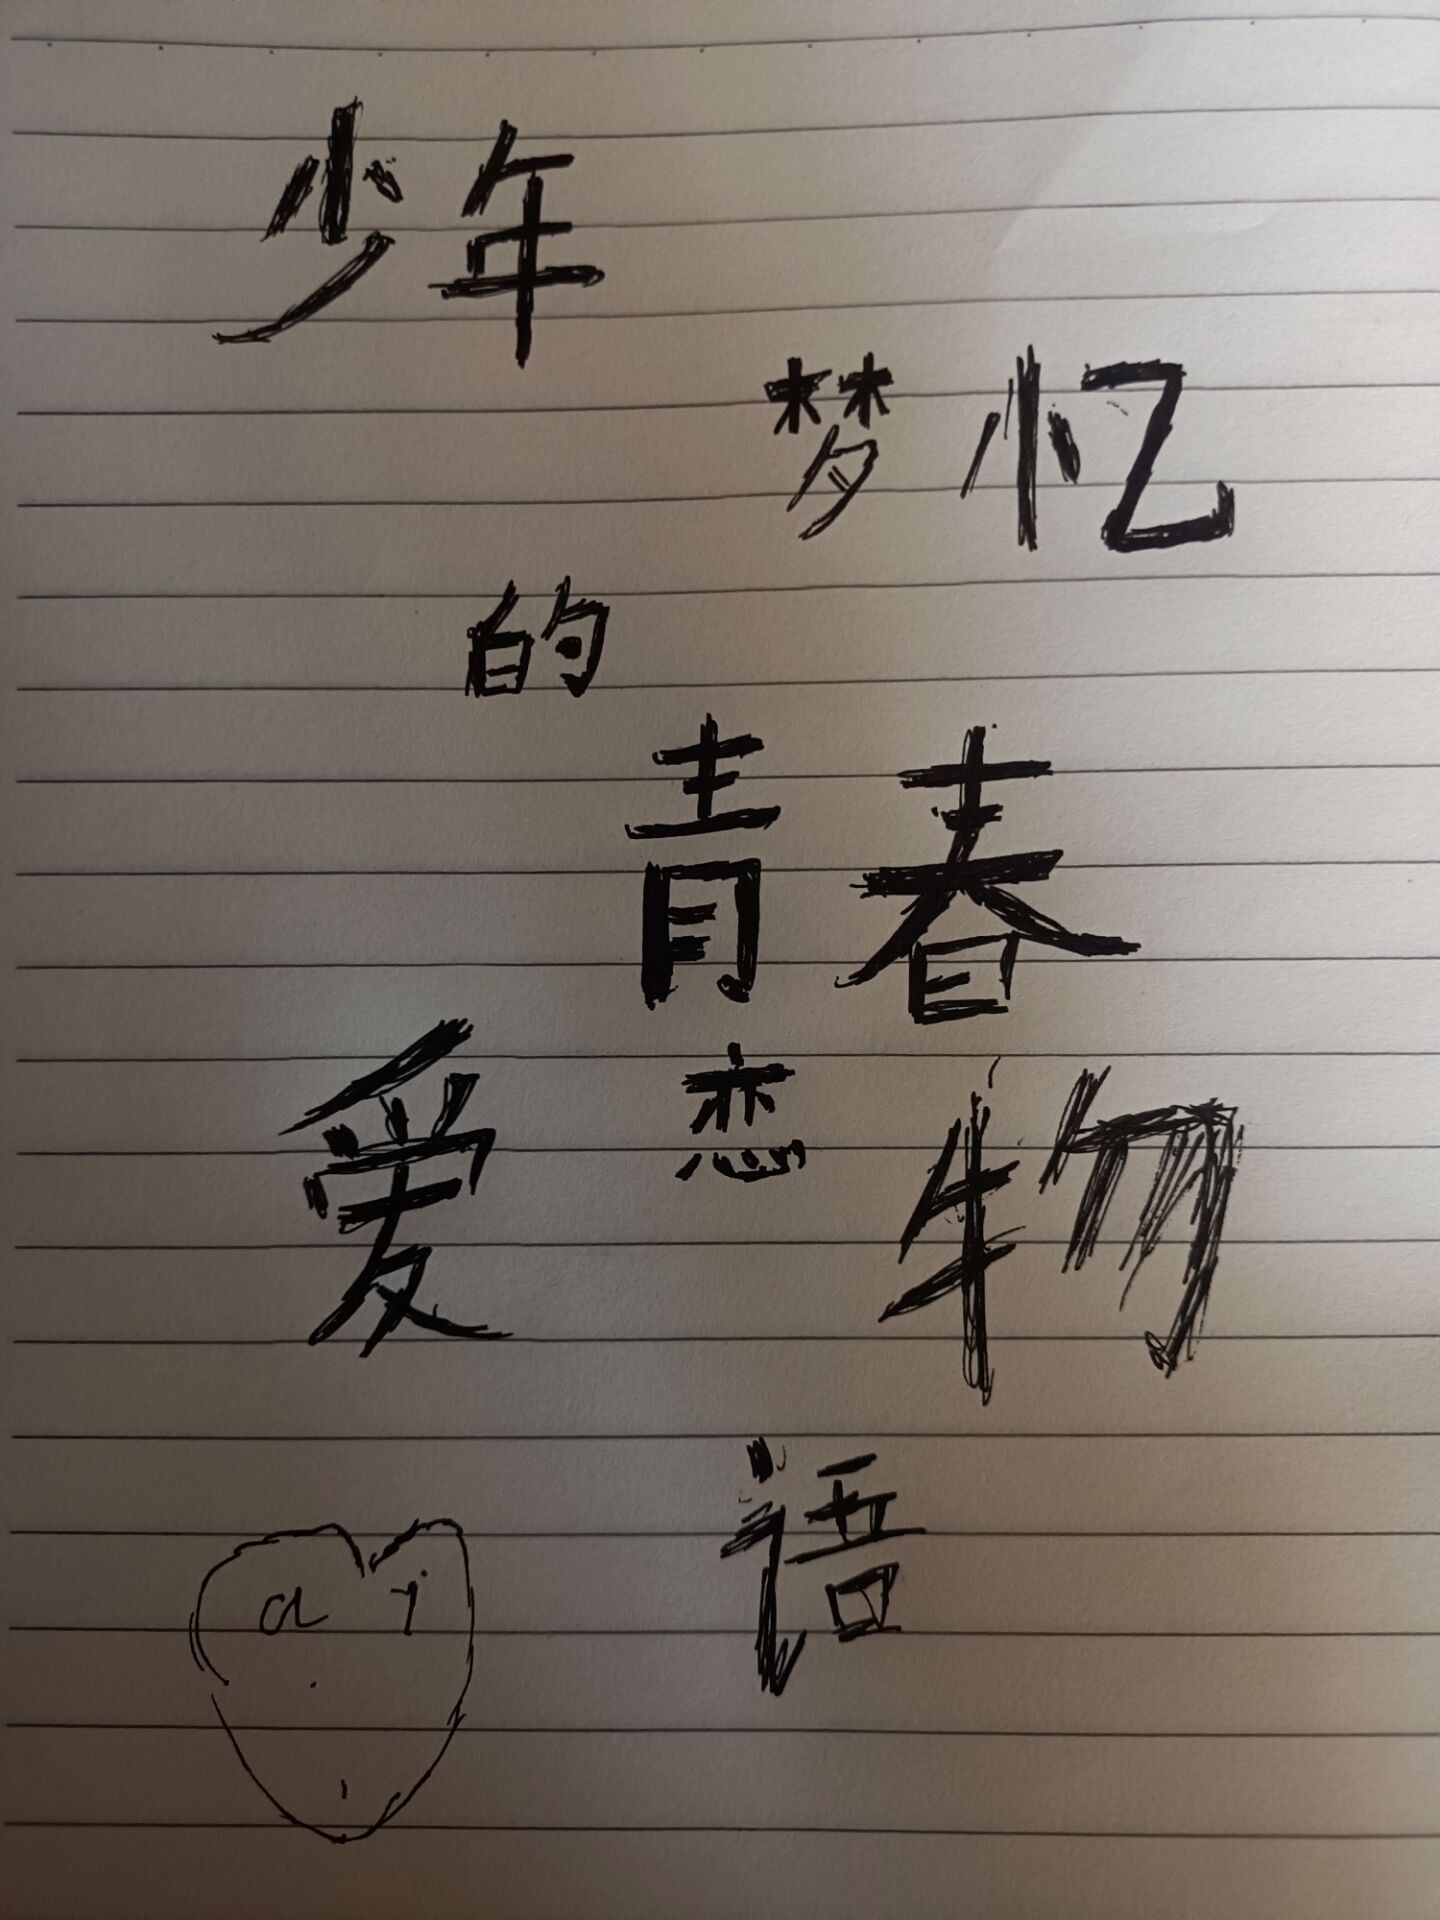 少年
梦忆
的
青春
爱恋物
语
ai